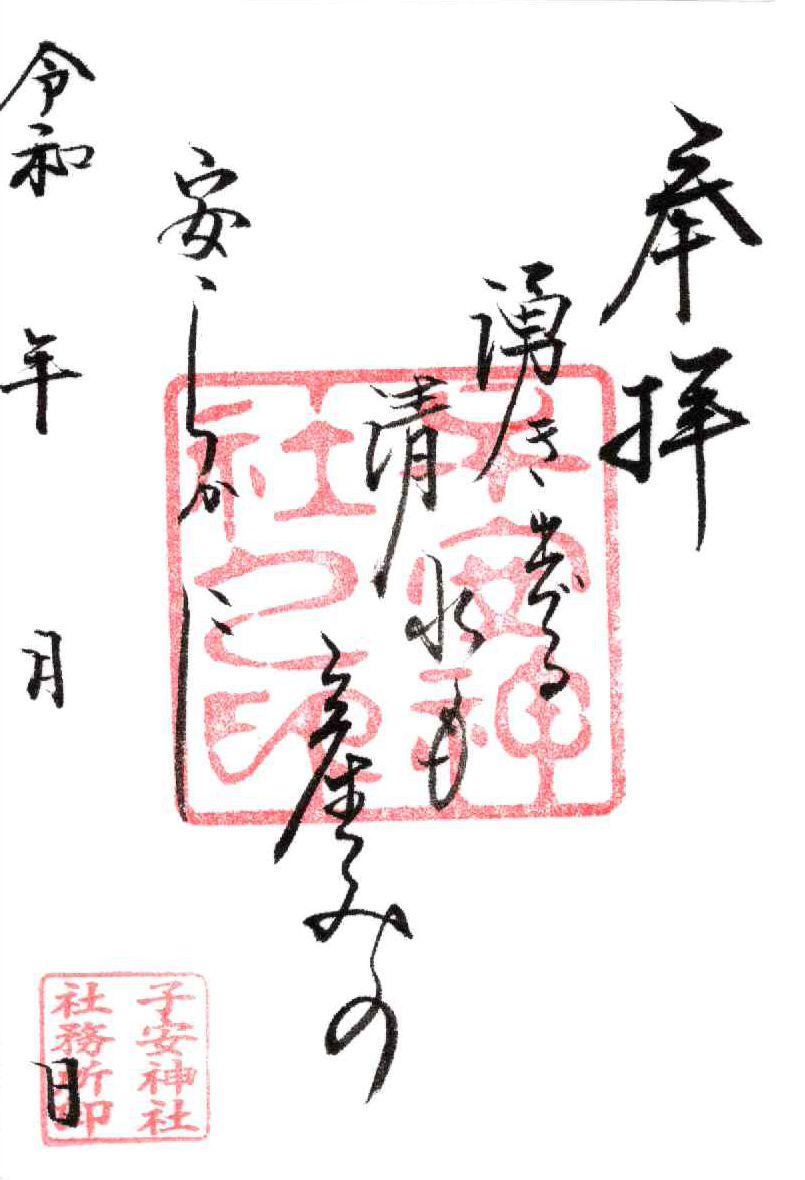 奉拝
湧き出づる
清水も
産みの
安らかに
令和 年 月 日
子安神社
社之印
子安神社
社務所印